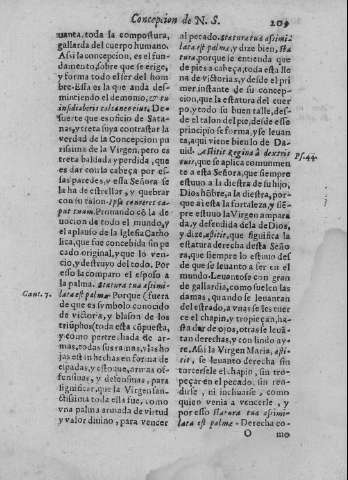 Concepcion de N. S. 209
uanta, toda la compostura,
gallarda del cuerpo humano.
Assi la concepcion, es el fun-
damento, sobre que se erige,
y forma todo el ser del hom-
bre. Essa es la que anda des-
mintiendo el demonio, & tu
insidiaberis calcaneo eius. De
suerte que es oficio de Sata-
nas, y treta suya contrastar la
verdad de la Concepcion pu
rissima de la Virgen, pero es
treta baldada y perdida, que
es dar con la cabeça por es-
sas paredes, y essa Señora se
la ha de estrellar, y quebrar
con su talon. Ipsa conteret ca-
put tuum. Primando có la de
uocion de todo el mundo, y
el aplauso de la Iglesia Catho
lica, que fue concebida sin pe
cado original, y que lo ven-
cio, y destruyo del todo. Por
esso la comparo el esposo a
la palma. Statura tua assimi-
Cant. 7. lata est palmæ. Porque (fuera
de que es symbolo conocido
de victoria, y blason de los
triúphos) toda esta cópuesta,
y como pertrechada de ar-
mas, todas sus ramas, y las ho
jas estan hechas en forma de
espadas, y estoque, armas of-
fensiuas, y defensiuas, para
significar, que la Virgen san-
ctissima toda ella fue, como
vna palma armada de virtud
y valor diuino, para vencer
al pecado. Statura tua assimi-
lata est palmæ, y dize bien, sta
tura, porque se entienda que
de pies a cabeça, toda esta lle
na de victorias, y desde el pri
mer instante de su concep-
cion, que la estatura del cuer
po, y todo su buen talle, des-
de el talon del pie, desde esse
principio se forma, y se leuan
ta, aqui viene bien lo de Da-
uid. Astitit Regina à dextris
tuis, que se aplica comunmen Ps. 44.
te a esta Señora, que siempre
estuuo a la diestra de su hijo,
Dios hóbre, a la diestra, por-
que ai esta la fortaleza, y siem
pre estuuo la Virgen ampara
da, y defendida dela de Dios,
y dize, astitit, que significa la
estatura derecha desta Seño
ra, que siempre lo estuuo des
de que se leuanto a ser en el
mundo. Leuantose con gran
de gallardia, como suelen las
damas, quando se leuantan
del estrado, a vnas se les tuer
ce el chapin, y tropieçan, ha-
sta dar de ojos, otras se leuá-
tan derechas, y con lindo ay-
re. Assi la Virgen Maria, asti-
tit, se leuanto derecha sin
torcersele el chapin, sin tro-
peçar en el pecado, sin ren-
dirse, ni incluarse, como
quien venia a vencerle, y
por esso statura tua assimi-
lata est palmæ. Derecha co-
O mo